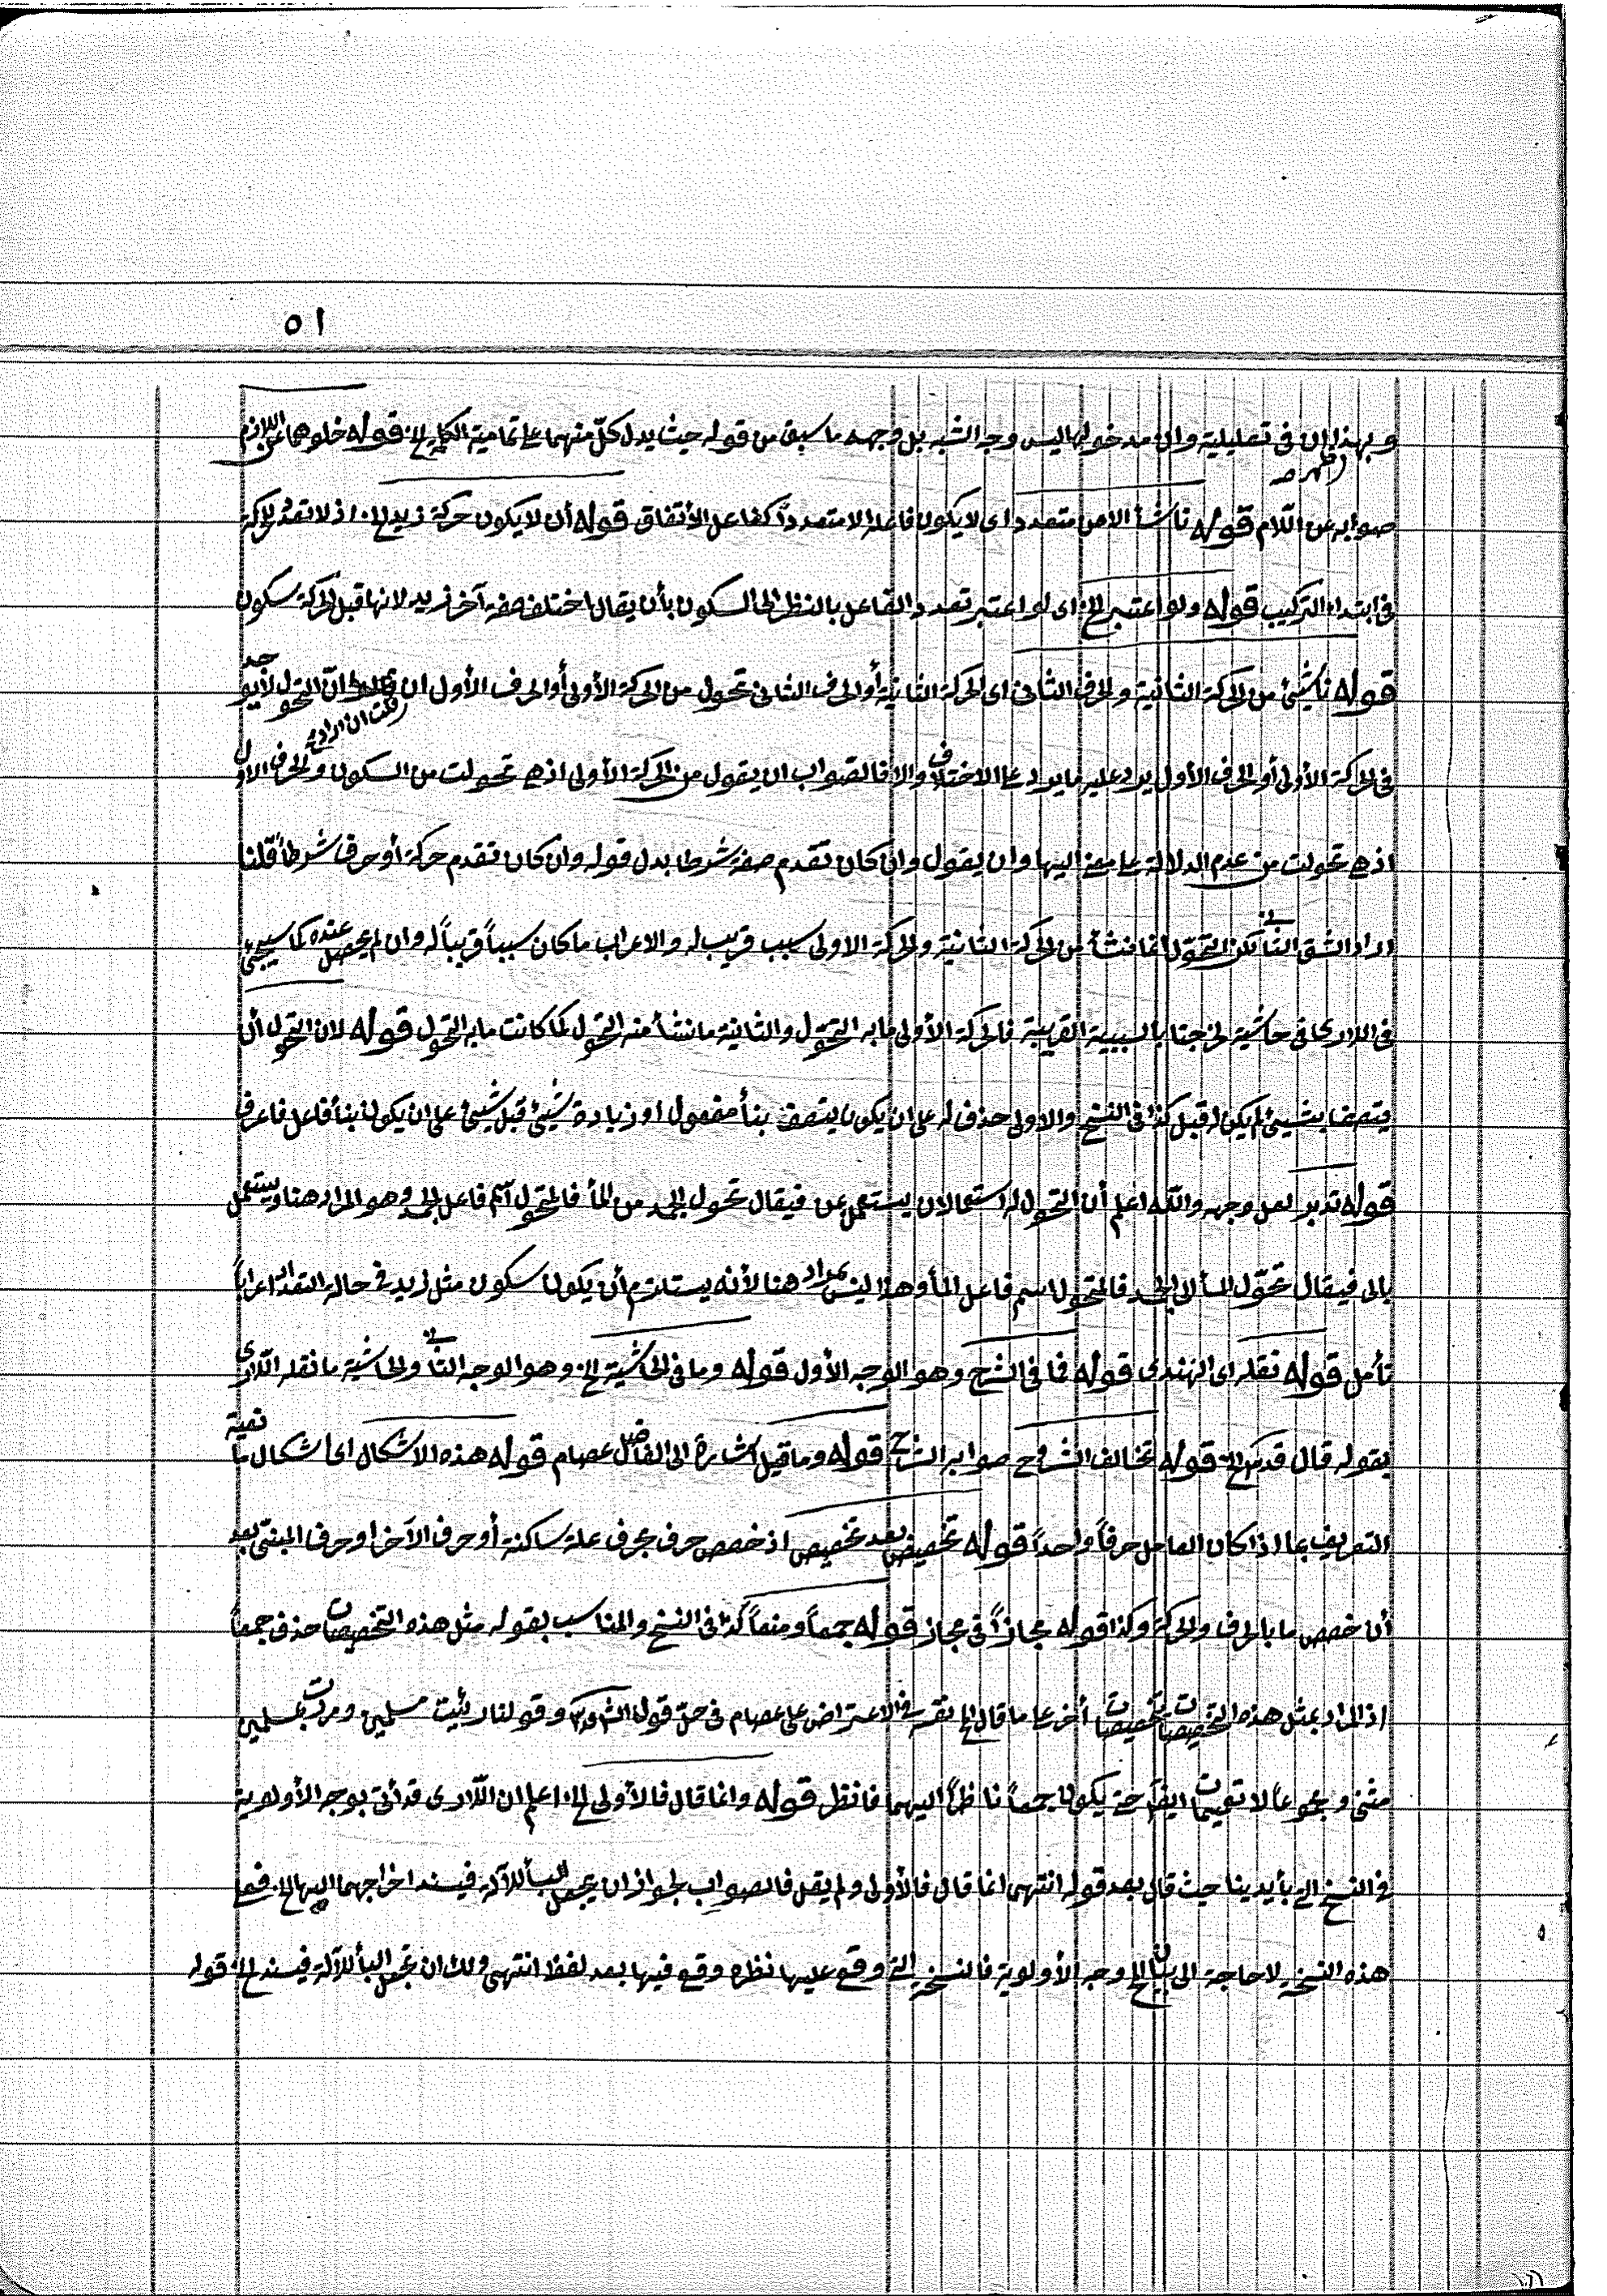 ٥١
وبهذا ان في تعليلية وان مدخولها ليس وجه الشبه بل وجهه ما سبق من قوله حيث يدل كلّ منهما على تمامية الكلمة الخ قوله خلوها عن اللازم
صوابه عن اللام قوله ناشأ الا من متعدد اى لا يكون فاعله الا متعدداً كفاعل الأتفاق قوله أن لا يكون حركة زيد الخ اذ لا تعدد للحركة
في ابتداء التركيب قوله ولو اعتبر الخ اى لو اعتبر تعدد الفاعل بالنظر الى السكون بأن يقال اختلف صفة آخر زيد لانها قبل الحركة سكون
قوله ناشيئ من الحركة الثانية والحرف الثانى اى الحركة الثانية أو الحرف الثانى تحول من الحركة الأولى أو الحرف الأول ان قلت ان اراد به انّ التحول لا يوجد
في الحركة الأولى أو الحرف الأول يرد عليه ما يرد على الاختلاف والا فالصواب ان يقول من الحركة الأولى اذ هى تحولت من السكون والحرف الاول
اذ هى تحولت من عدم الدلالة على معنى اليها وان يقول وان كان تقدم صفة شرطا بدل قوله وان كان تقدم حركة أو حرف شرطاً قلنا
اراد الشق الثانى لكن التحوّل انما نشأ من الحركة الثانية والحركة الاولى سبب قريب له والاعراب ما كان سبباً قريباً له وان لم يحصل عنده كما سيجئ
في اللارى في حاشية خرجتا بالسببية القريبة فالحركة الأولى ما به التحوّل والثانية ما نشأ منه التحول لما كانت ما به التحول قوله لان التحول أن
يتصف بشيئ لم يكن له قبل كذا في النسخ والاولى حذف له على ان يكون يتصف بنأ مفعول او زيادة شيئ قبل شيئ على ان يكون بنأ فاعل فاعرف
قوله تدبر لعل وجهه والله اعلم أن التحول له استعمالان يستعمل بمن فيقال تحول الجسد من المأ فالمتحول اسم فاعل الجسد وهو المراد هنا ويستعمل
بالى فيقال تحوّل المأ الى الجسد فالمتحول اسم فاعل المأ وهذا ليس بمراد هنا لأنه يستلزم أن يكون سكون مثل زيد في حالة التعداد اعراباً
تأمل قوله نقله اى الهندى قوله فما في الشرح وهو الوجه الأول قوله وما في الحاشية الخ وهو الوجه الثانى والحاشية ما نقله اللارى
بقوله قال قدس الخ قوله تخالف الشروح صوابه الشرح قوله وما قيل اشارة الى الفاضل عصام قوله هذه الاشكال اى اشكال
التعريف بما اذا كان العامل حرفاً واحداً قوله تخصيص بعد تخصيص اذ خصص حرف بحرف علة ساكنة أو حرف الآخر او حرف المبنى بعد
أن خصص ما بالحرف والحركة وكذا قوله مجازاً في مجاز قوله جمعاً ومنعاً كذا في النسخ والمناسب بقوله مثل هذه التخصيصات حذف جمعاً
اذ المراد بمثل هذه التخصيصات تخصيصات أخر على ما قال الخ نفسه في الاعتراض على عصام في حلّ قول الشارح وقولنا رئيت مسلمين ومررت بمسلمين
مثنى ومجموعاً لا تعميمات ايضاً حتى يكون جمعاً ناظراً اليهما فانظر قوله وانما قال فالأولى الخ اعلم ان اللارى قد أتى بوجه الأولوية
في النسخ التى بأيدينا حيث قال بعد قوله انتهى انما قال فالأولى ولم يقل فالصواب لجواز ان يجعل البأ للآلة فيسند اخراجهما اليها الخ فعلى
هذه النسخة لا حاجة الى بيان الخ وجه الأولوية فالنسخة التى وقع عليها نظره وقع فيها بعد لفظ انتهى ولك ان تجعل البأ للآلة فيسند الخ قوله